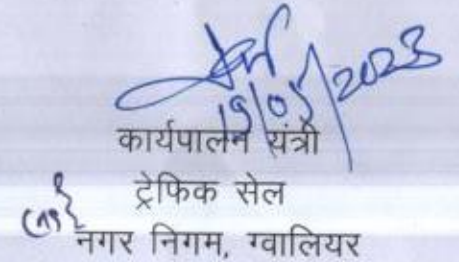 19/05/2023
कार्यपालन यंत्री
ट्रेफिक सेल
नगर निगम, ग्वालियर